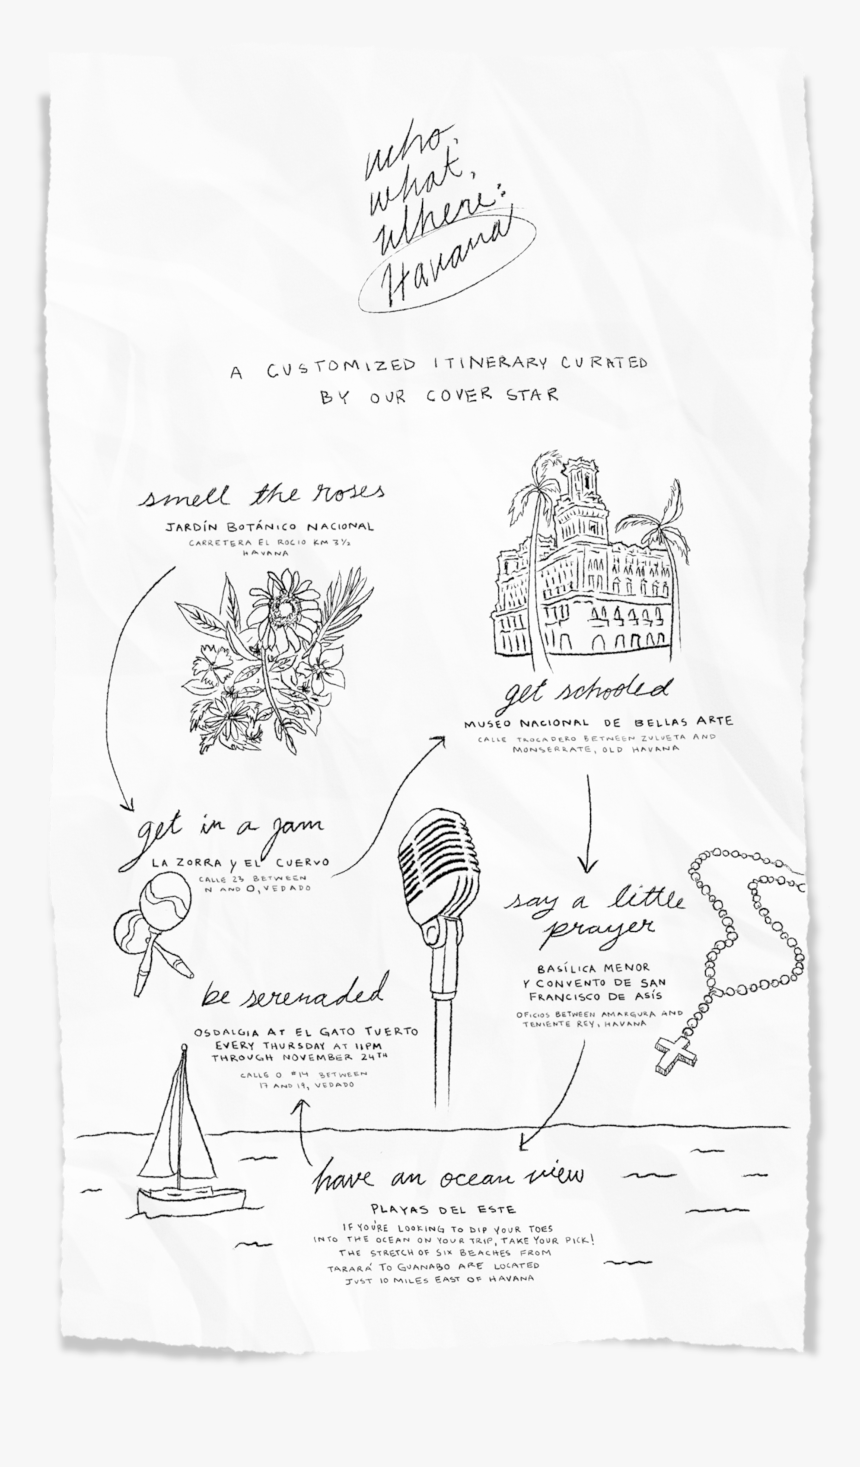 who,
what,
where:
Havana
A CUSTOMIZED ITINERARY CURATED
BY OUR COVER STAR
smell the roses
JARDÍN BOTÁNICO NACIONAL
CARRETERA EL ROCIO KM 3½
HAVANA
get schooled
MUSEO NACIONAL DE BELLAS ARTE
CALLE TROCADERO BETWEEN ZULVETA AND
MONSERRATE, OLD HAVANA
get in a jam
LA ZORRA Y EL CUERVO
CALLE 23 BETWEEN
N AND O, VEDADO
say a little
prayer
BASÍLICA MENOR
Y CONVENTO DE SAN
FRANCISCO DE ASÍS
OFICIOS BETWEEN AMARGURA AND
TENIENTE REY, HAVANA
be serenaded
OSDALGIA AT EL GATO TUERTO
EVERY THURSDAY AT 11PM
THROUGH NOVEMBER 24TH
CALLE O #14 BETWEEN
17 AND 19, VEDADO
have an ocean view
PLAYAS DEL ESTE
IF YOU'RE LOOKING TO DIP YOUR TOES
INTO THE OCEAN ON YOUR TRIP, TAKE YOUR PICK!
THE STRETCH OF SIX BEACHES FROM
TARARÁ TO GUANABO ARE LOCATED
JUST 10 MILES EAST OF HAVANA